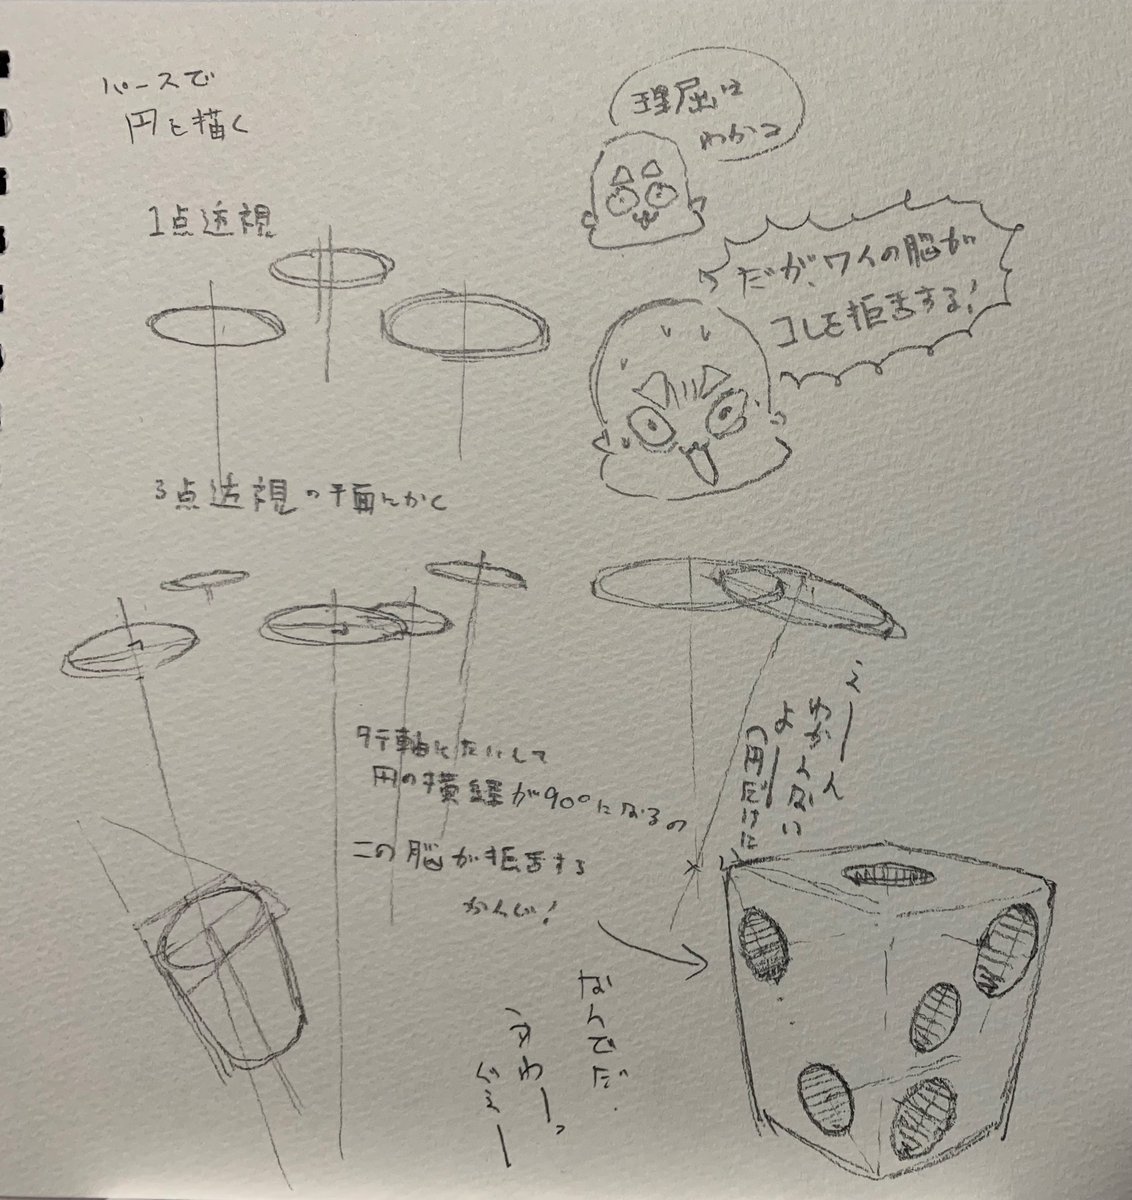 パースで
円を描く
理屈は
わかる
1点透視
だが、ワイの脳が
コレを拒否する!
3点透視の平面にかく
タテ軸にたいして
円の横線が90°になるの
この脳が拒否する
かんじ!
えーん
わかんない
よー
(円だけに
なんでだ
うわーっ
ぐえー